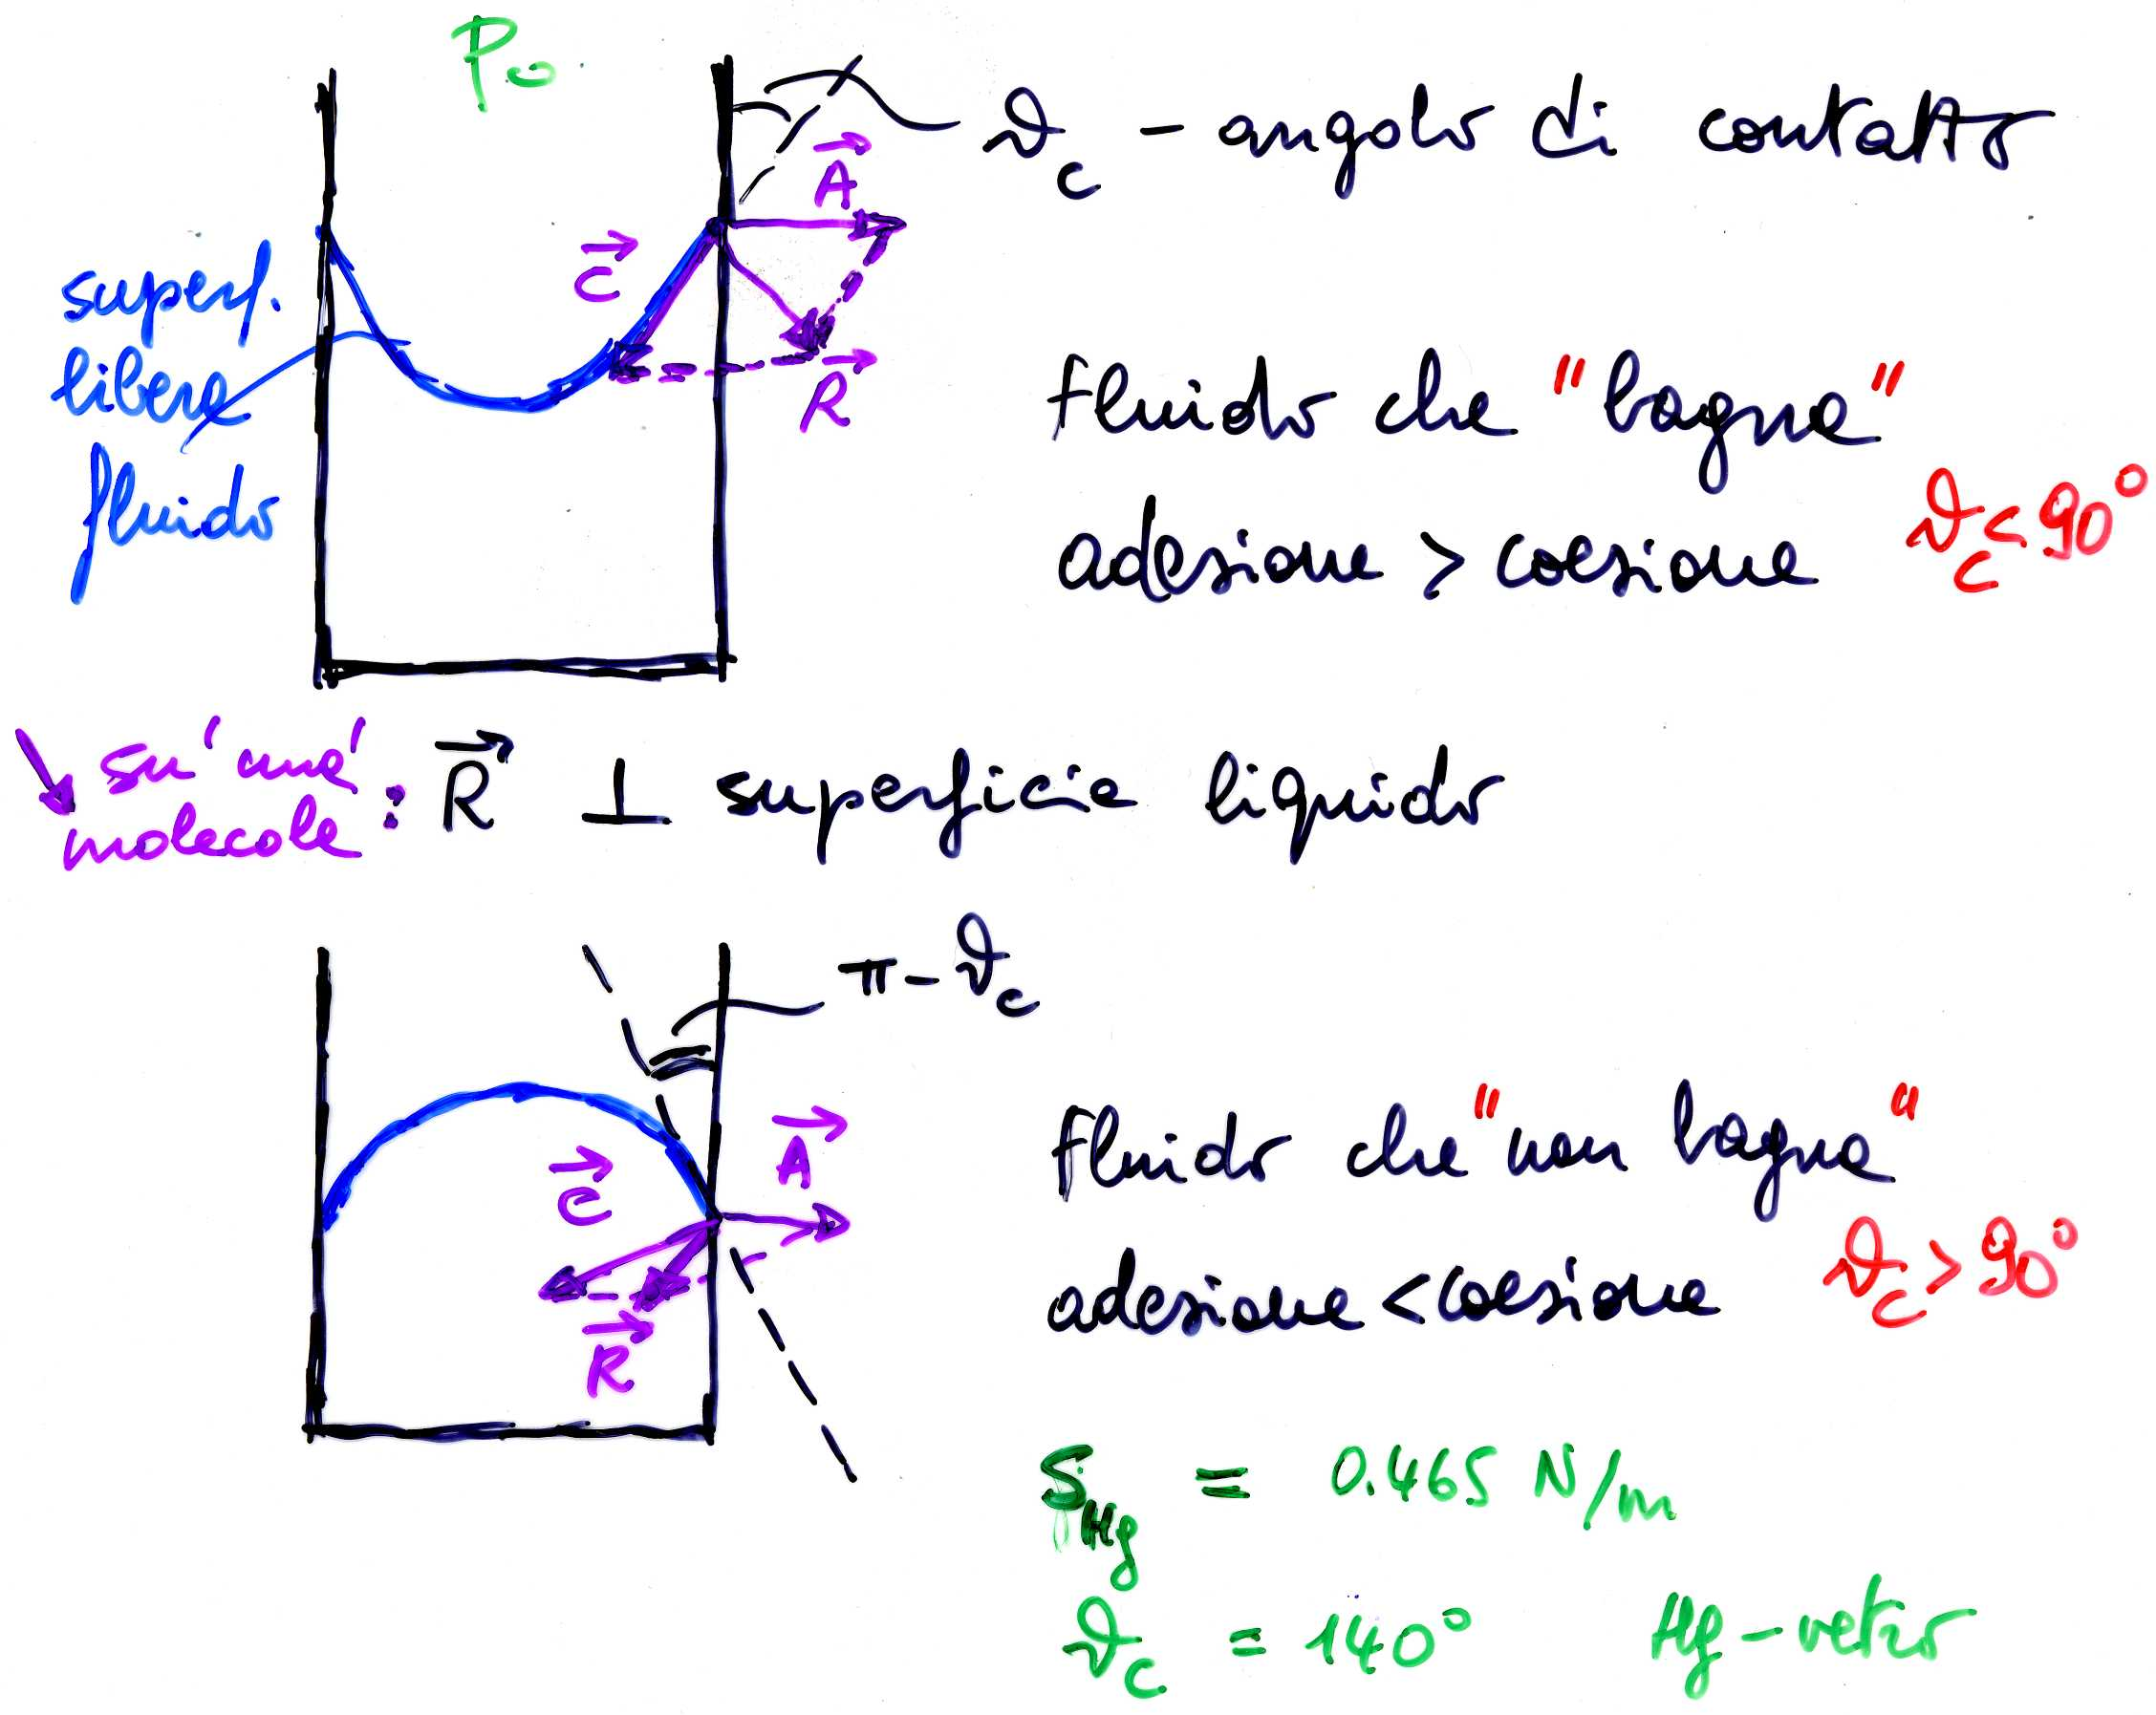 P₀
ϑc - angolo di contatto
A⃗
C⃗
R⃗
superf.
libera
fluido
fluido che "bagna"
adesione > coesione ϑc < 90°
su 'una' molecola : R⃗ ⊥ superficie liquido
π - ϑc
A⃗
C⃗
R⃗
fluido che "non bagna"
adesione < coesione ϑc > 90°
S_Hg = 0.465 N/m
ϑc = 140° Hg - vetro